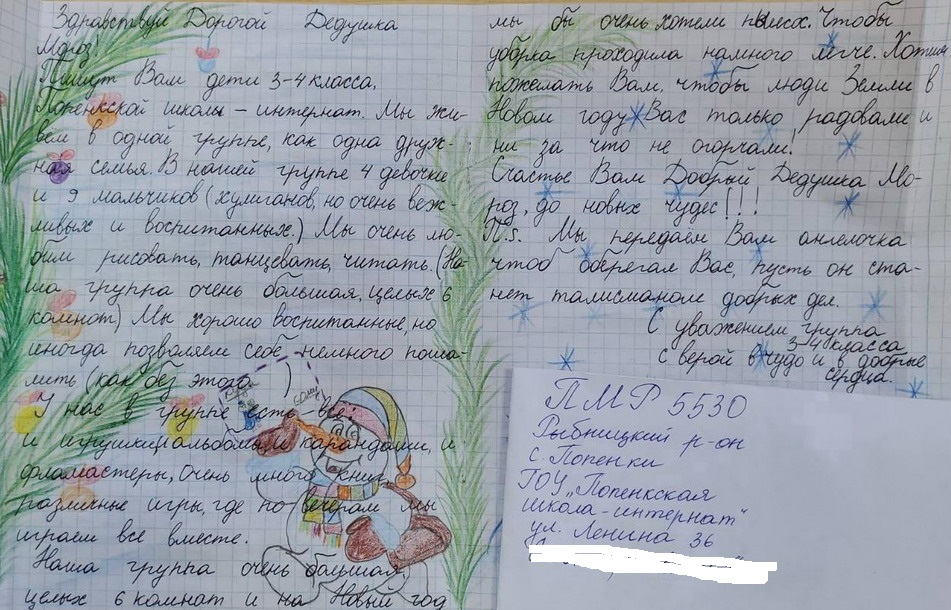 Здравствуй Дорогой Дедушка
Мороз
Пишут Вам дети 3-4 класса,
Попенкской школы – интернат. Мы жи-
вем в одной группе, как одна друж-
ная семья. В нашей группе 4 девочки
и 9 мальчиков (хулиганов, но очень веж-
ливых и воспитанных.) Мы очень лю-
бим рисовать, танцевать, читать. (На-
ша группа очень большая, целых 6
комнат) Мы хорошо воспитанные, но
иногда позволяем себе немного поша-
лить (как без этого )
У нас в группе есть все:
и игрушки, и альбомы, и карандаши, и
фламастеры, Очень много книг,
различные игры, где по вечерам мы
играем все вместе.
Наша группа очень большая,
целых 6 комнат и на Новый год
мы бы очень хотели пылесос. Чтобы
уборка проходила намного легче. Хотим
пожелать Вам, чтобы люди Земли в
Новом году Вас только радовали и
ни за что не огорчали!
Счастье Вам Добрый Дедушка Мо-
роз, до новых чудес!!!
П.s. Мы передаём Вам ангелочка
чтоб оберегал Вас, пусть он ста-
нет талисманом добрых дел.
С уважением группа
3-4 класса
с верой в чудо и в добрые
сердца.
ПМР 5530
Рыбницкий р-он
с. Попенки
ГОУ „Попенкская
школа-интернат"
ул. Ленина 36